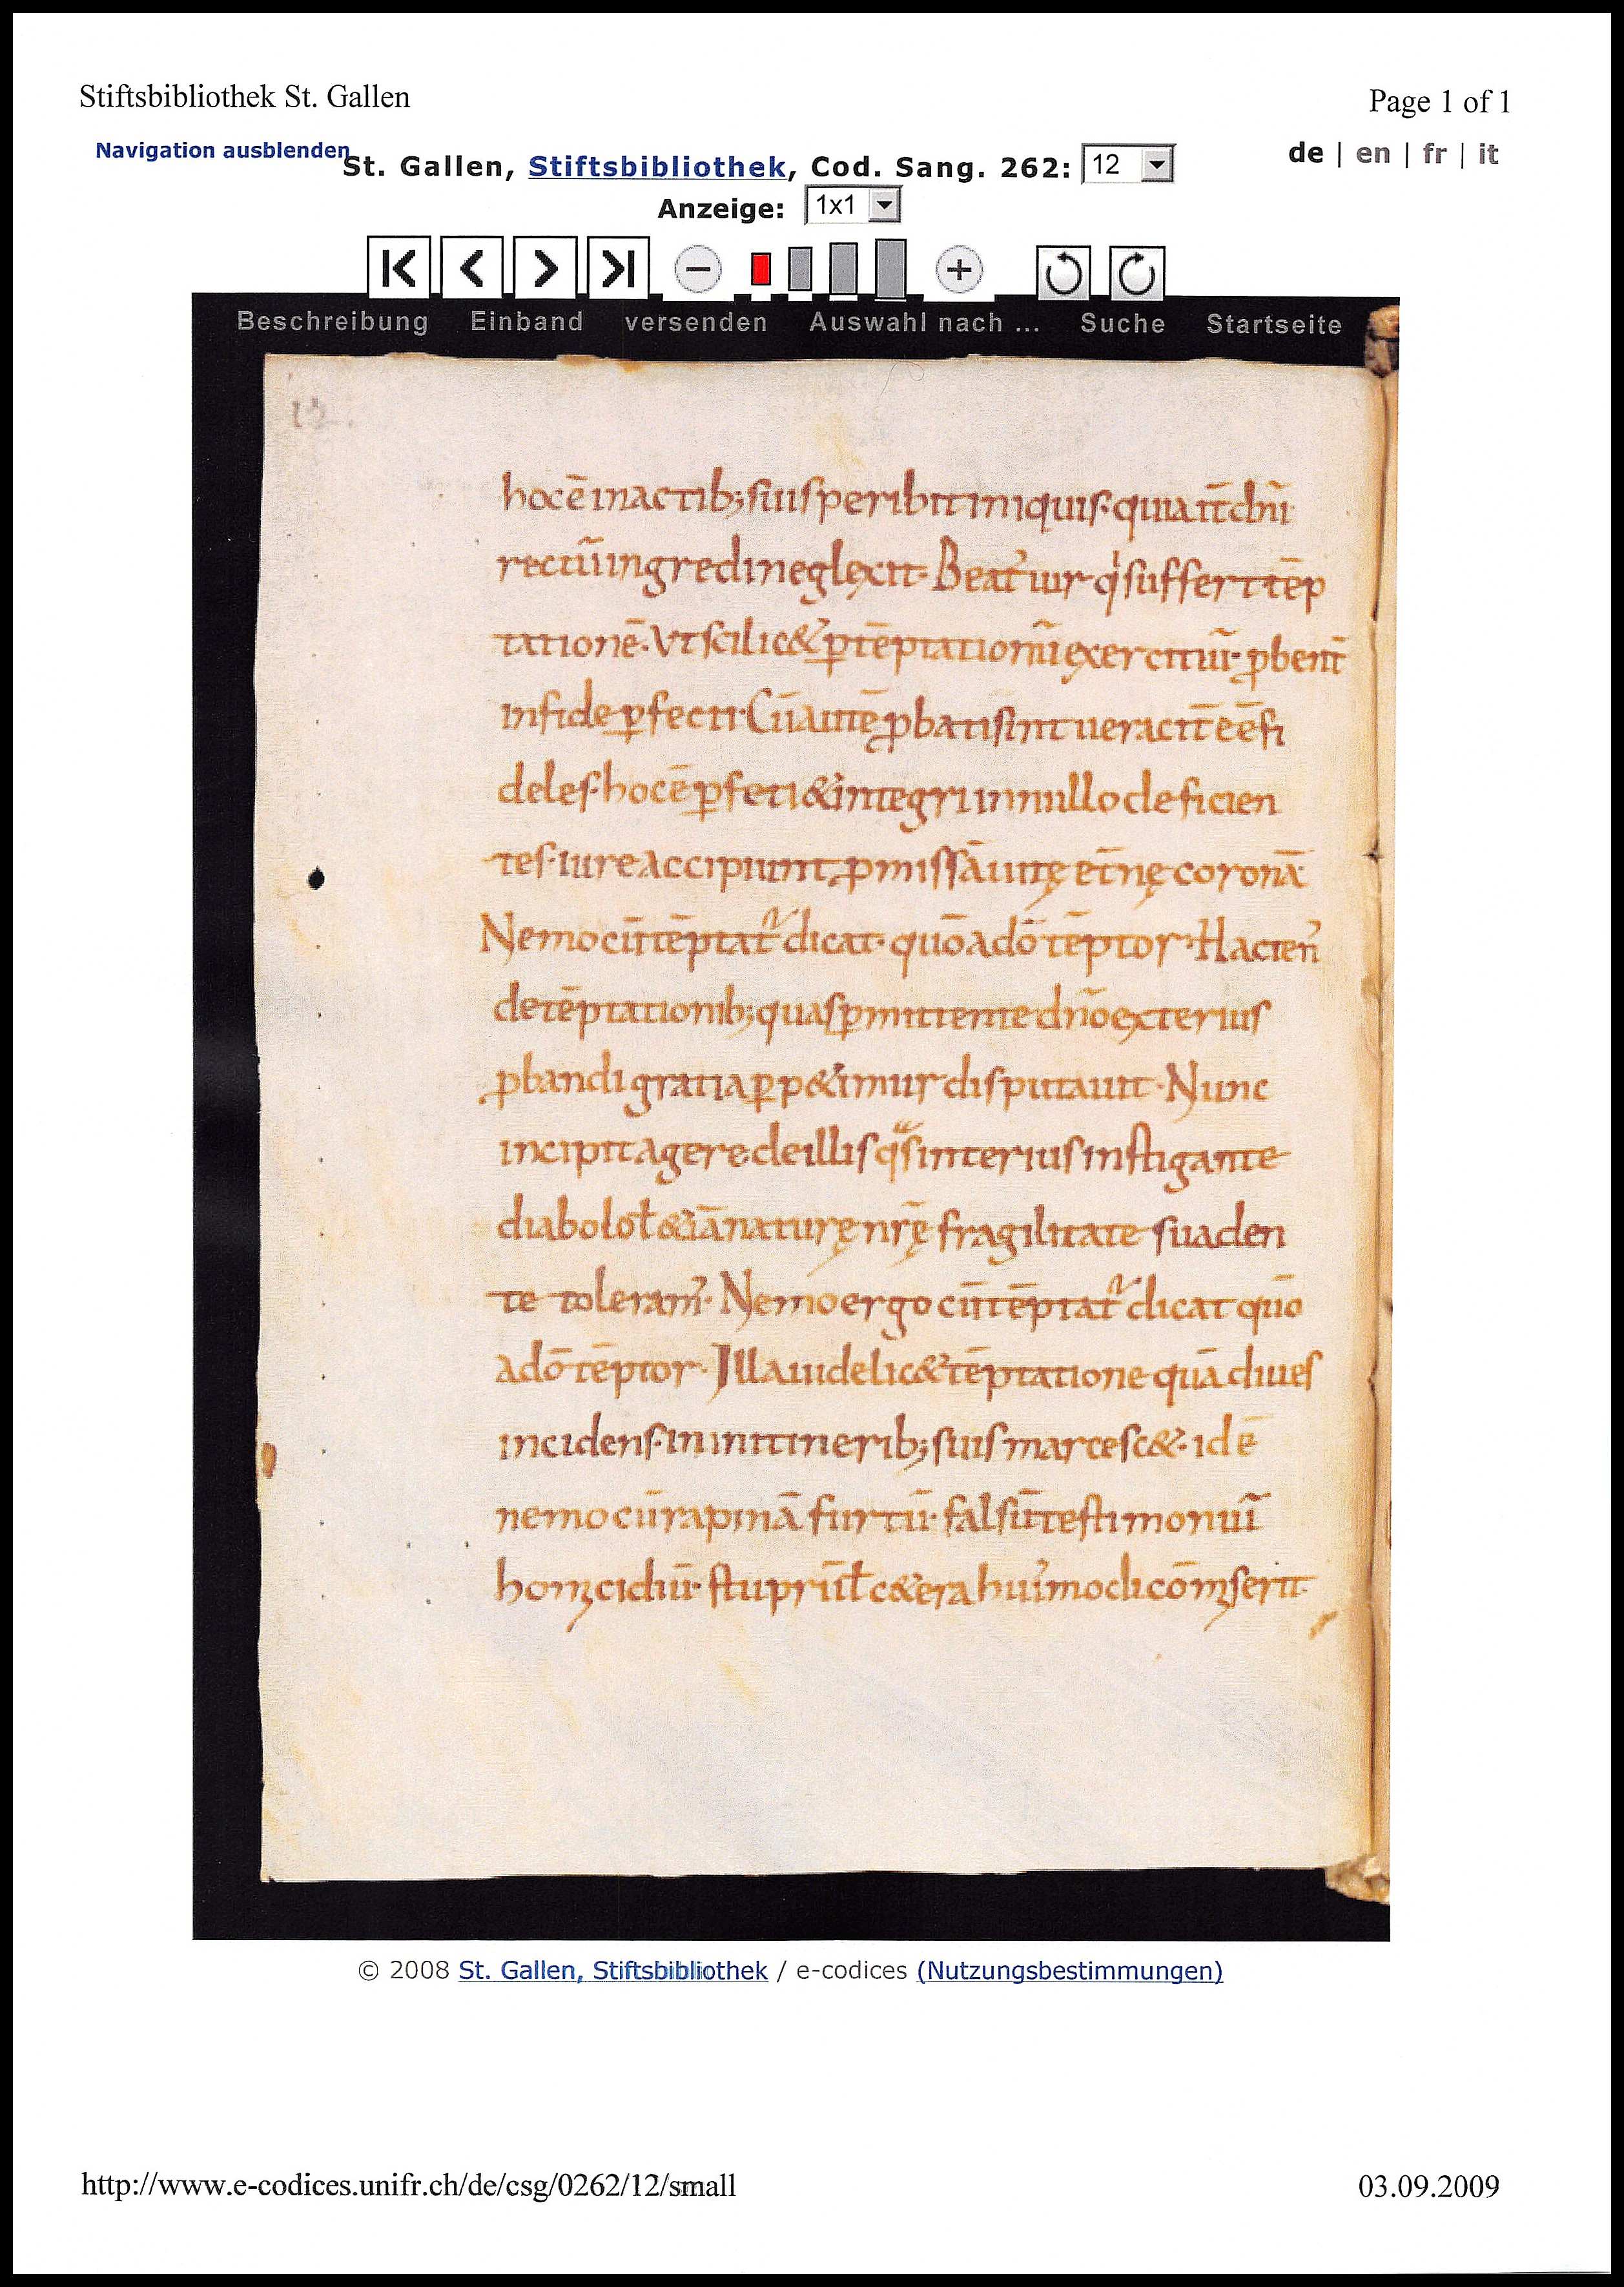 Stiftsbibliothek St. Gallen
Page 1 of 1
Navigation ausblenden
St. Gallen, Stiftsbibliothek, Cod. Sang. 262: 12
de | en | fr | it
Anzeige: 1x1
Beschreibung Einband versenden Auswahl nach ... Suche Startseite
12.
hocē inactib; suis peribit iniquis· quia it̄ dn̄i
rectū ingredi neglexit· Beat᾽ uir q suffert tēp
tationē· Vt scilic& p̱ tēptationū exercitiū· ꝓbent᷑
infide p̱fecti· Cū autē ꝓbati sint ueracit̄ eē fi
deles· hocē p̱feti & integri innullo deficien
tes· iure accipiunt ꝓmissā uitę et̄nę coronā
Nemo cū tēptat᷑ dicat· quō adō tēptor· Hacten᾽
detēptationib; quas p̱mittente dn̄o exterius
ꝓbandi gratia p̱p&imur disputauit· Nunc
incipit agere deillis qᵃs interius instigante
diabolo ł &iā naturę nrę̄ fragilitate suaden
te toleram᾽· Nemo ergo cū tēptat᷑ dicat quō
adō tēptor· Illa uidelic& tēptatione quā diues
incidens· in initinerib; suis marcesc&· idē
nemo cū rapinā furtū· falsū testimoniū
homicidiū· stuprū ł c&era hui᾽modi cōmiserit·
© 2008 St. Gallen, Stiftsbibliothek / e-codices (Nutzungsbestimmungen)
http://www.e-codices.unifr.ch/de/csg/0262/12/small
03.09.2009